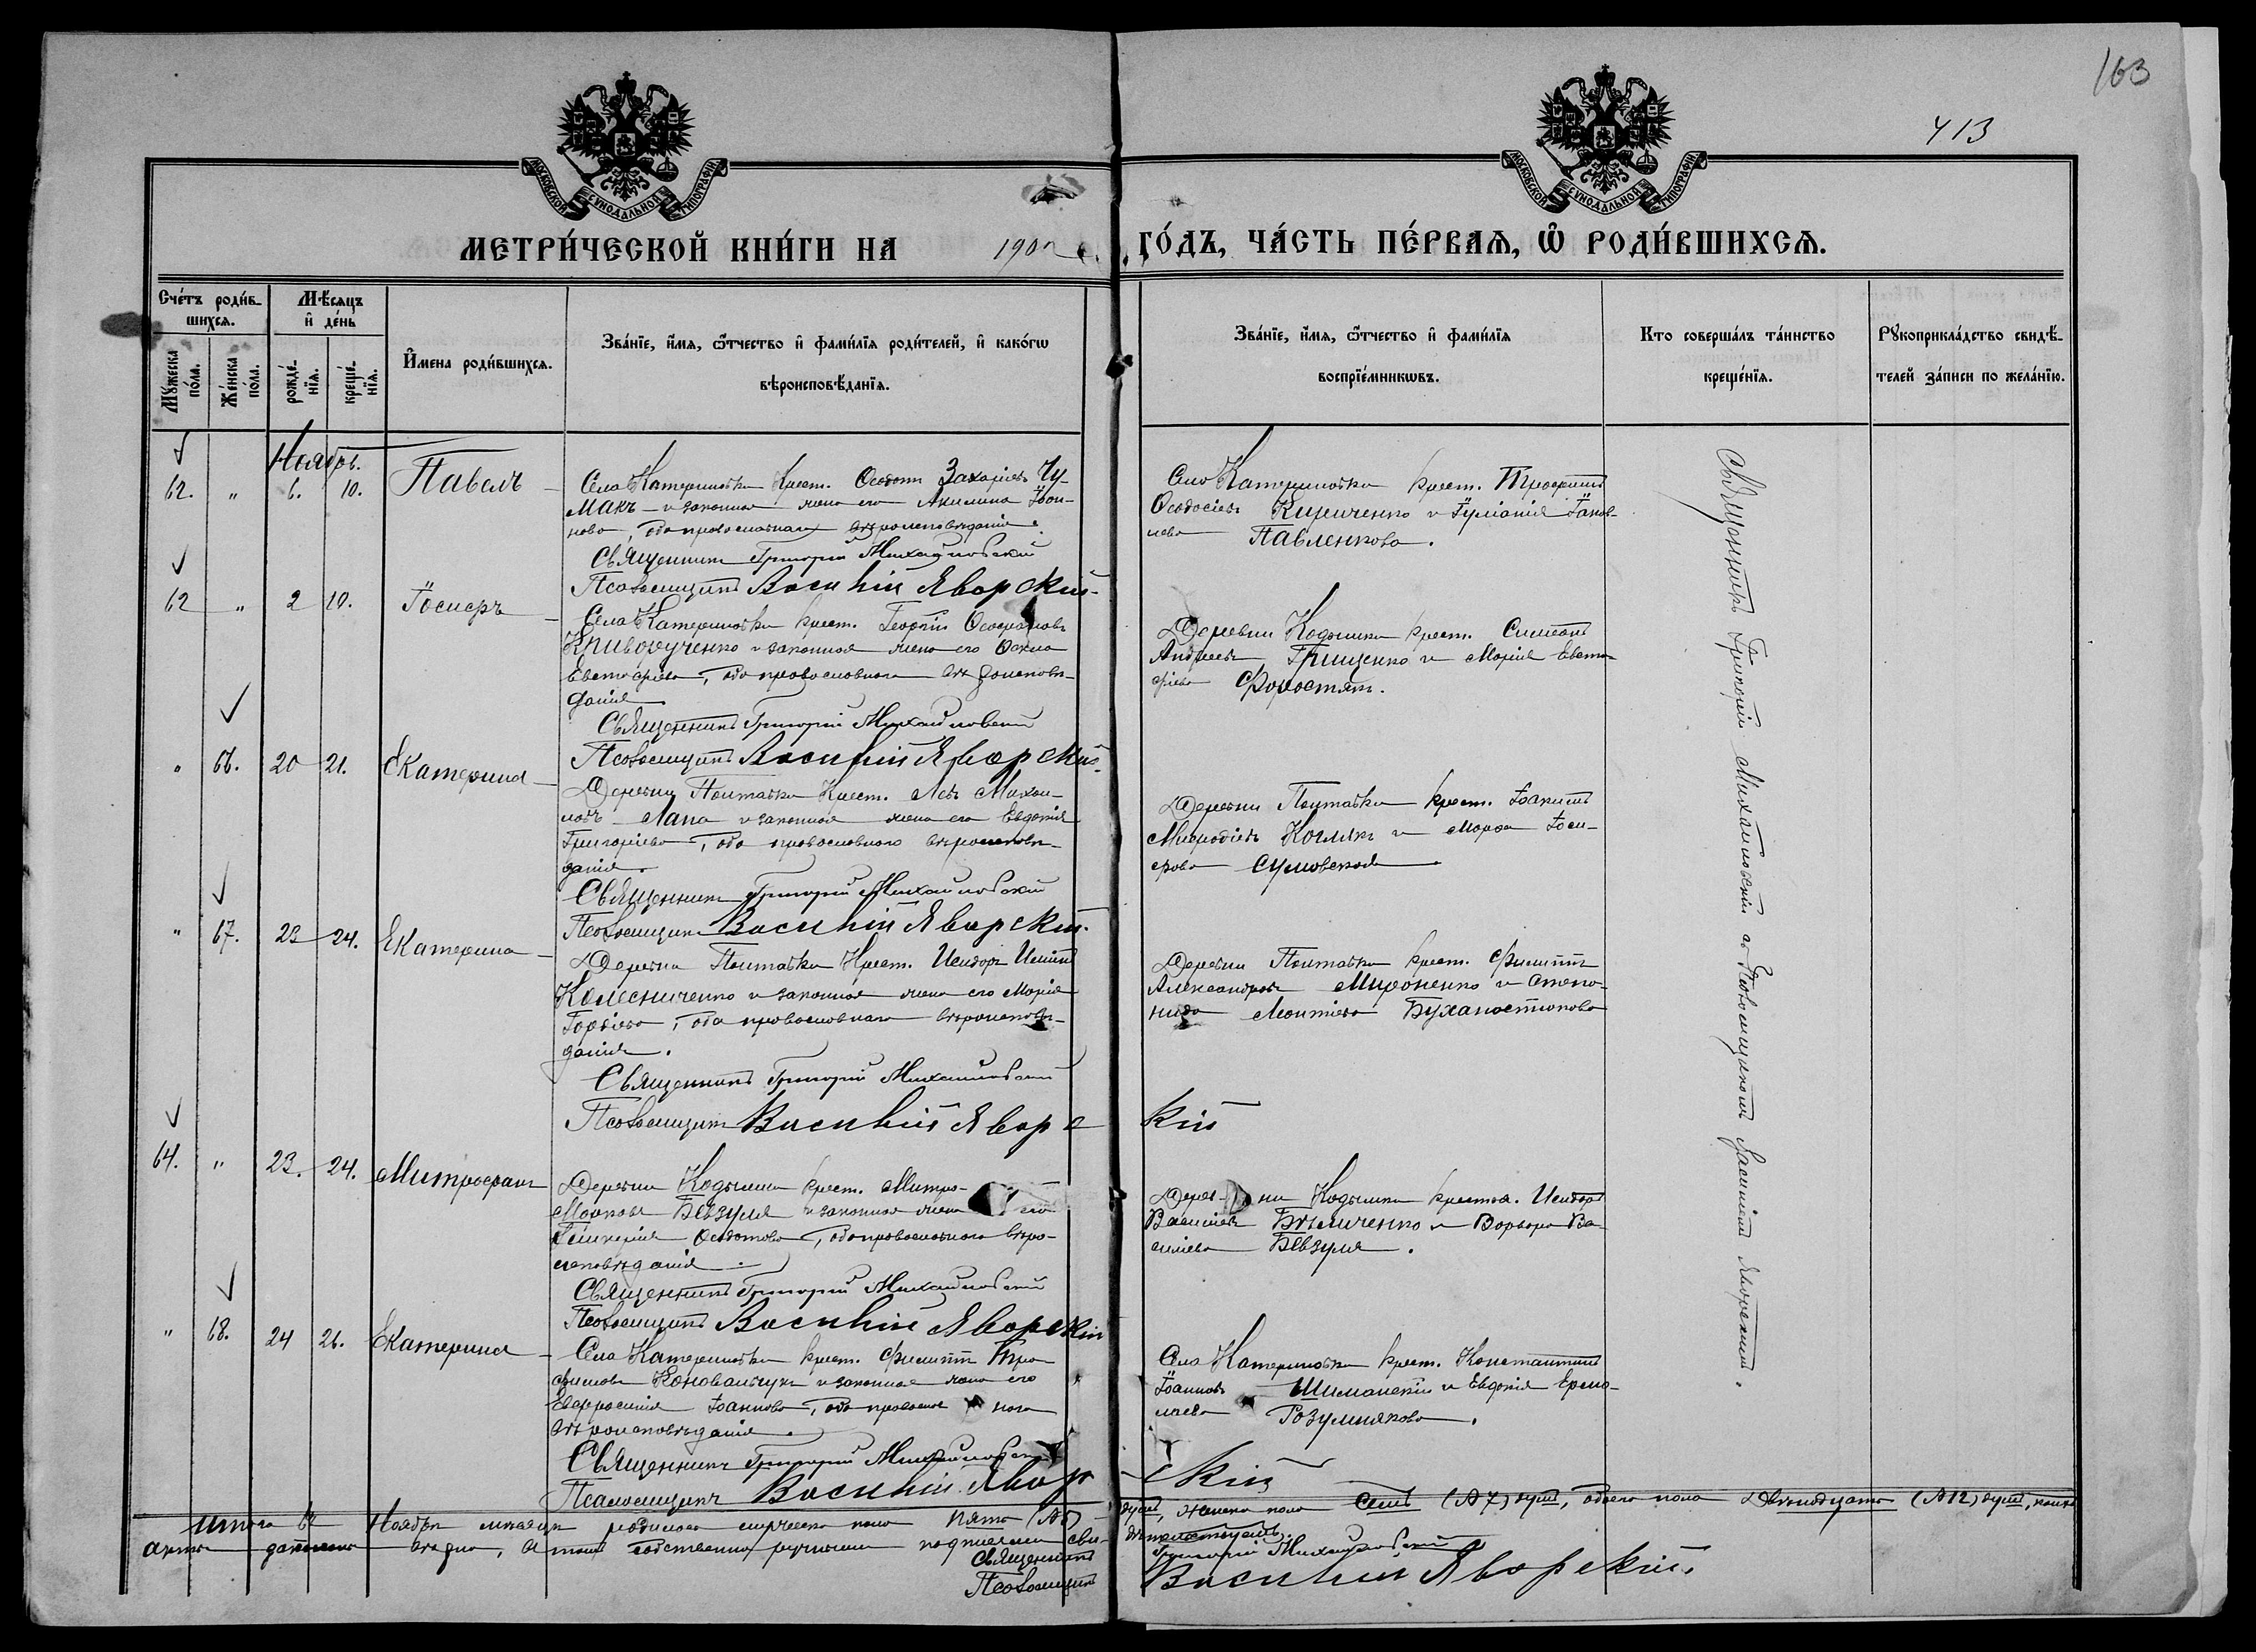 163
413
МОСКОВСКОЙ СѴНОДАЛЬНОЙ ТИПОГРАФІИ
МОСКОВСКОЙ СѴНОДАЛЬНОЙ ТИПОГРАФІИ
МЕТРИ́ЧЕСКОЙ КНИ́ГИ НА 190 ГО́ДЪ, ЧА́СТЬ ПЕ́РВАѦ, Ѽ РОДИ́ВШИХСѦ.
Сче́тъ роди́вшихсѧ.
Мꙋ́жеска по́ла.
Же́нска по́ла.
Мѣ́сѧцъ и҆ де́нь
рожде́нїѧ.
креще́нїѧ.
И҆́мена роди́вшихсѧ.
Зва́нїе, и҆́мѧ, ѻ҆́тчество и҆ фами́лїѧ роди́телей, и҆ како́гѡ
вѣроисповѣ́данїѧ.
Зва́нїе, и҆́мѧ, ѻ҆́тчество и҆ фами́лїѧ
воспрїе́мникѡвъ.
Кто соверша́лъ та́инство
креще́нїѧ.
Рꙋкоприкла́дство свидѣ́-
телей за́писи по жела́нїю.
Ноябрь.
62. " 6. 10. Павелъ
Села Катериновки Крест. Ѳеодотъ Захаріевъ Чу-
макъ и законная жена его Акилина Іоан-
нова, оба православнаго вѣроисповѣданія.
Священникъ Григорій Михайловскій
Псаломщикъ Василій Яворскій
Села Катериновки крест. Трофимъ
Ѳеодосіевъ Кириченко и Іуліанія Іаков-
лева Павленкова.
62 " 2 10. Іосифъ
Села Катериновки крест. Георгій Ѳеофановъ
Криворученко и законная жена его Ѳекла
Евстафіева, оба православнаго вѣроисповѣ-
данія
Священникъ Григорій Михайловскій
Псаломщикъ Василій Яворскій
Деревни Кодымки крест. Симеонъ
Андреевъ Грищенко и Марія Евста-
фіева Форостякъ.
" 66. 20 21. Екатерина
Деревни Полтавки Крест. Левъ Михаи-
ловъ Лапа и законная жена его Евдокія
Григоріева, оба православнаго вѣроисповѣ-
данія.
Священникъ Григорій Михайловскій
Псаломщикъ Василій Яворскій
Деревни Полтавки крест. Іоакимъ
Мефодіевъ и Марфа Іоси-
фова Сумовская
" 67. 23 24. Екатерина
Деревни Полтавки Крест. Исидоръ
Колесниченко и законная жена его Марія
Гордіева, оба православнаго вѣроисповѣ-
данія.
Священникъ Григорій Михайловскій
Псаломщикъ Василій Яворскій
Деревни Полтавки крест. Филиппъ
Александровъ Мироненко и Степа-
нида Леонтіева Буханостюкова
64. " 23. 24. Митрофанъ
Деревни Кодымки крест. Митро-
Марковъ Бевзуля и законная жена его
Гликерія Ѳеодотова, оба православнаго вѣро-
исповѣданія
Священникъ Григорій Михайловскій
Псаломщикъ Василій Яворскій
Деревни Кодымки крестья. Исидоръ
Василіевъ Бѣличенко и Варвара Ва-
силіева Бевзуля.
" 68. 24 26. Екатерина
Села Катериновки крест. Филиппъ Тро-
фимовъ Коновальчукъ и законная жена его
Евфросинія Іоаннова, оба православнаго
вѣроисповѣданія.
Священникъ Григорій Михайловскій
Псаломщикъ Василій Яворскій
Села Катериновки крест. Константинъ
Іоанновъ Шиманскій и Евдокія Ермо-
лаева Розумнякова.
Священникъ Григорій Михайловскій съ Псаломщикомъ Василіемъ Яворскимъ.
Итого въ Ноябрѣ мѣсяцѣ родилось мужеска пола пять (№5) душъ, женска пола семь (№7) душъ, обоего пола двѣнадцать (№12) душъ,
собственноручнымъ подписомъ свидѣтельствуемъ.
Священникъ Григорій Михайловскій
Псаломщикъ Василій Яворскій.